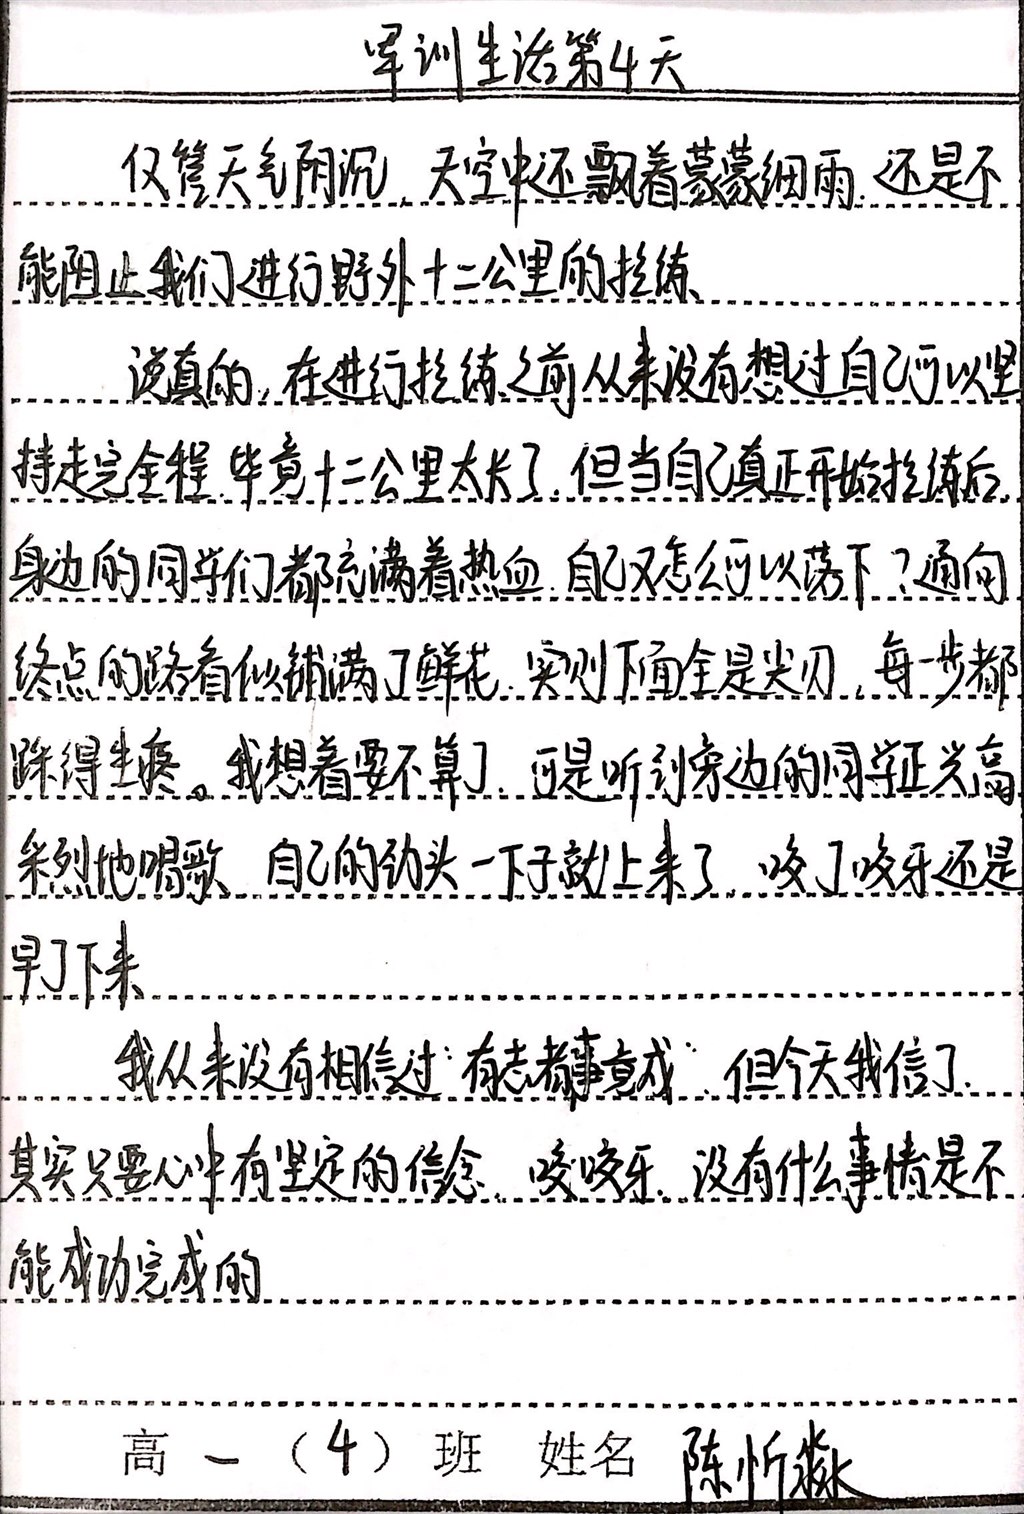 军训生活第4天
仅管天气阴沉,天空中还飘着蒙蒙细雨,还是不
能阻止我们进行野外十二公里的拉练、
说真的,在进行拉练之前从来没有想过自己可以坚
持走完全程,毕竟十二公里太长了,但当自己真正开始拉练后,
身边的同学们都充满着热血,自己又怎么可以落下?通向
终点的路看似铺满了鲜花,实则下面全是尖刃,每一步都
踩得生疼。我想着要不算了,可是听到旁边的同学正兴高
采烈地唱歌,自己的劲头一下子就上来了,咬了咬牙还是
早了下来
我从来没有相信过“有志者事竟成”,但今天我信了,
其实只要心中有坚定的信念,咬咬牙,没有什么事情是不
能成功完成的
高一(4)班 姓名 陈忻淼